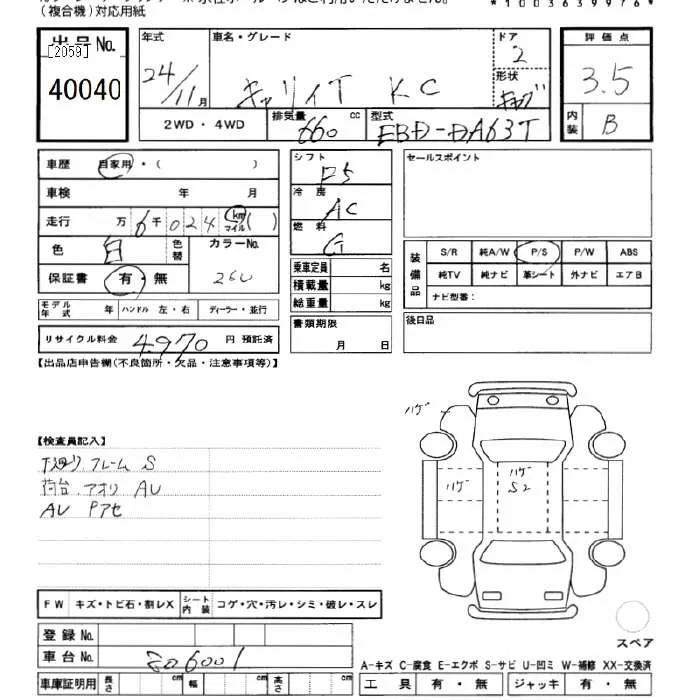 (複合機)対応用紙
*1003639976*
出品 No.
[2059]
40040
年式
24/11月
車名・グレード
キャリイT KC
ドア
2
形状
評価点
3.5
内装
B
2WD・4WD
排気量
660 cc
型式
EBD-DA63T
車歴 自家用・( )
車検 年 月
走行 万 6千024 km マイル ( )
色 白 色替 カラーNo.
26U
保証書 有・無
モデル年式 年 ハンドル 左・右 ディーラー・並行
リサイクル料金 4970 円 預託済
シフト
F5
冷房
AC
燃料
G
乗車定員 名
積載量 kg
総重量 kg
書類期限
月 日
セールスポイント
装備品
S/R 純A/W P/S P/W ABS
純TV 純ナビ 革シート 外ナビ エアB
ナビ型番:
後日品
【出品店申告欄(不良箇所・欠品・注意事項等)】
【検査員記入】
下廻り フレーム S
荷台 アオリ AU
AU Pアセ
ハゲ
ハゲ
ハゲ
S2
FW キズ・トビ石・割レX シート内装 コゲ・穴・汚レ・シミ・破レ・スレ
登録 No.
車台 No. 806001
車庫証明用 長さ cm 幅 cm 高さ cm
スペア
A-キズ C-腐食 E-エクボ S-サビ U-凹ミ W-補修 XX-交換済
工具 有・無 ジャッキ 有・無